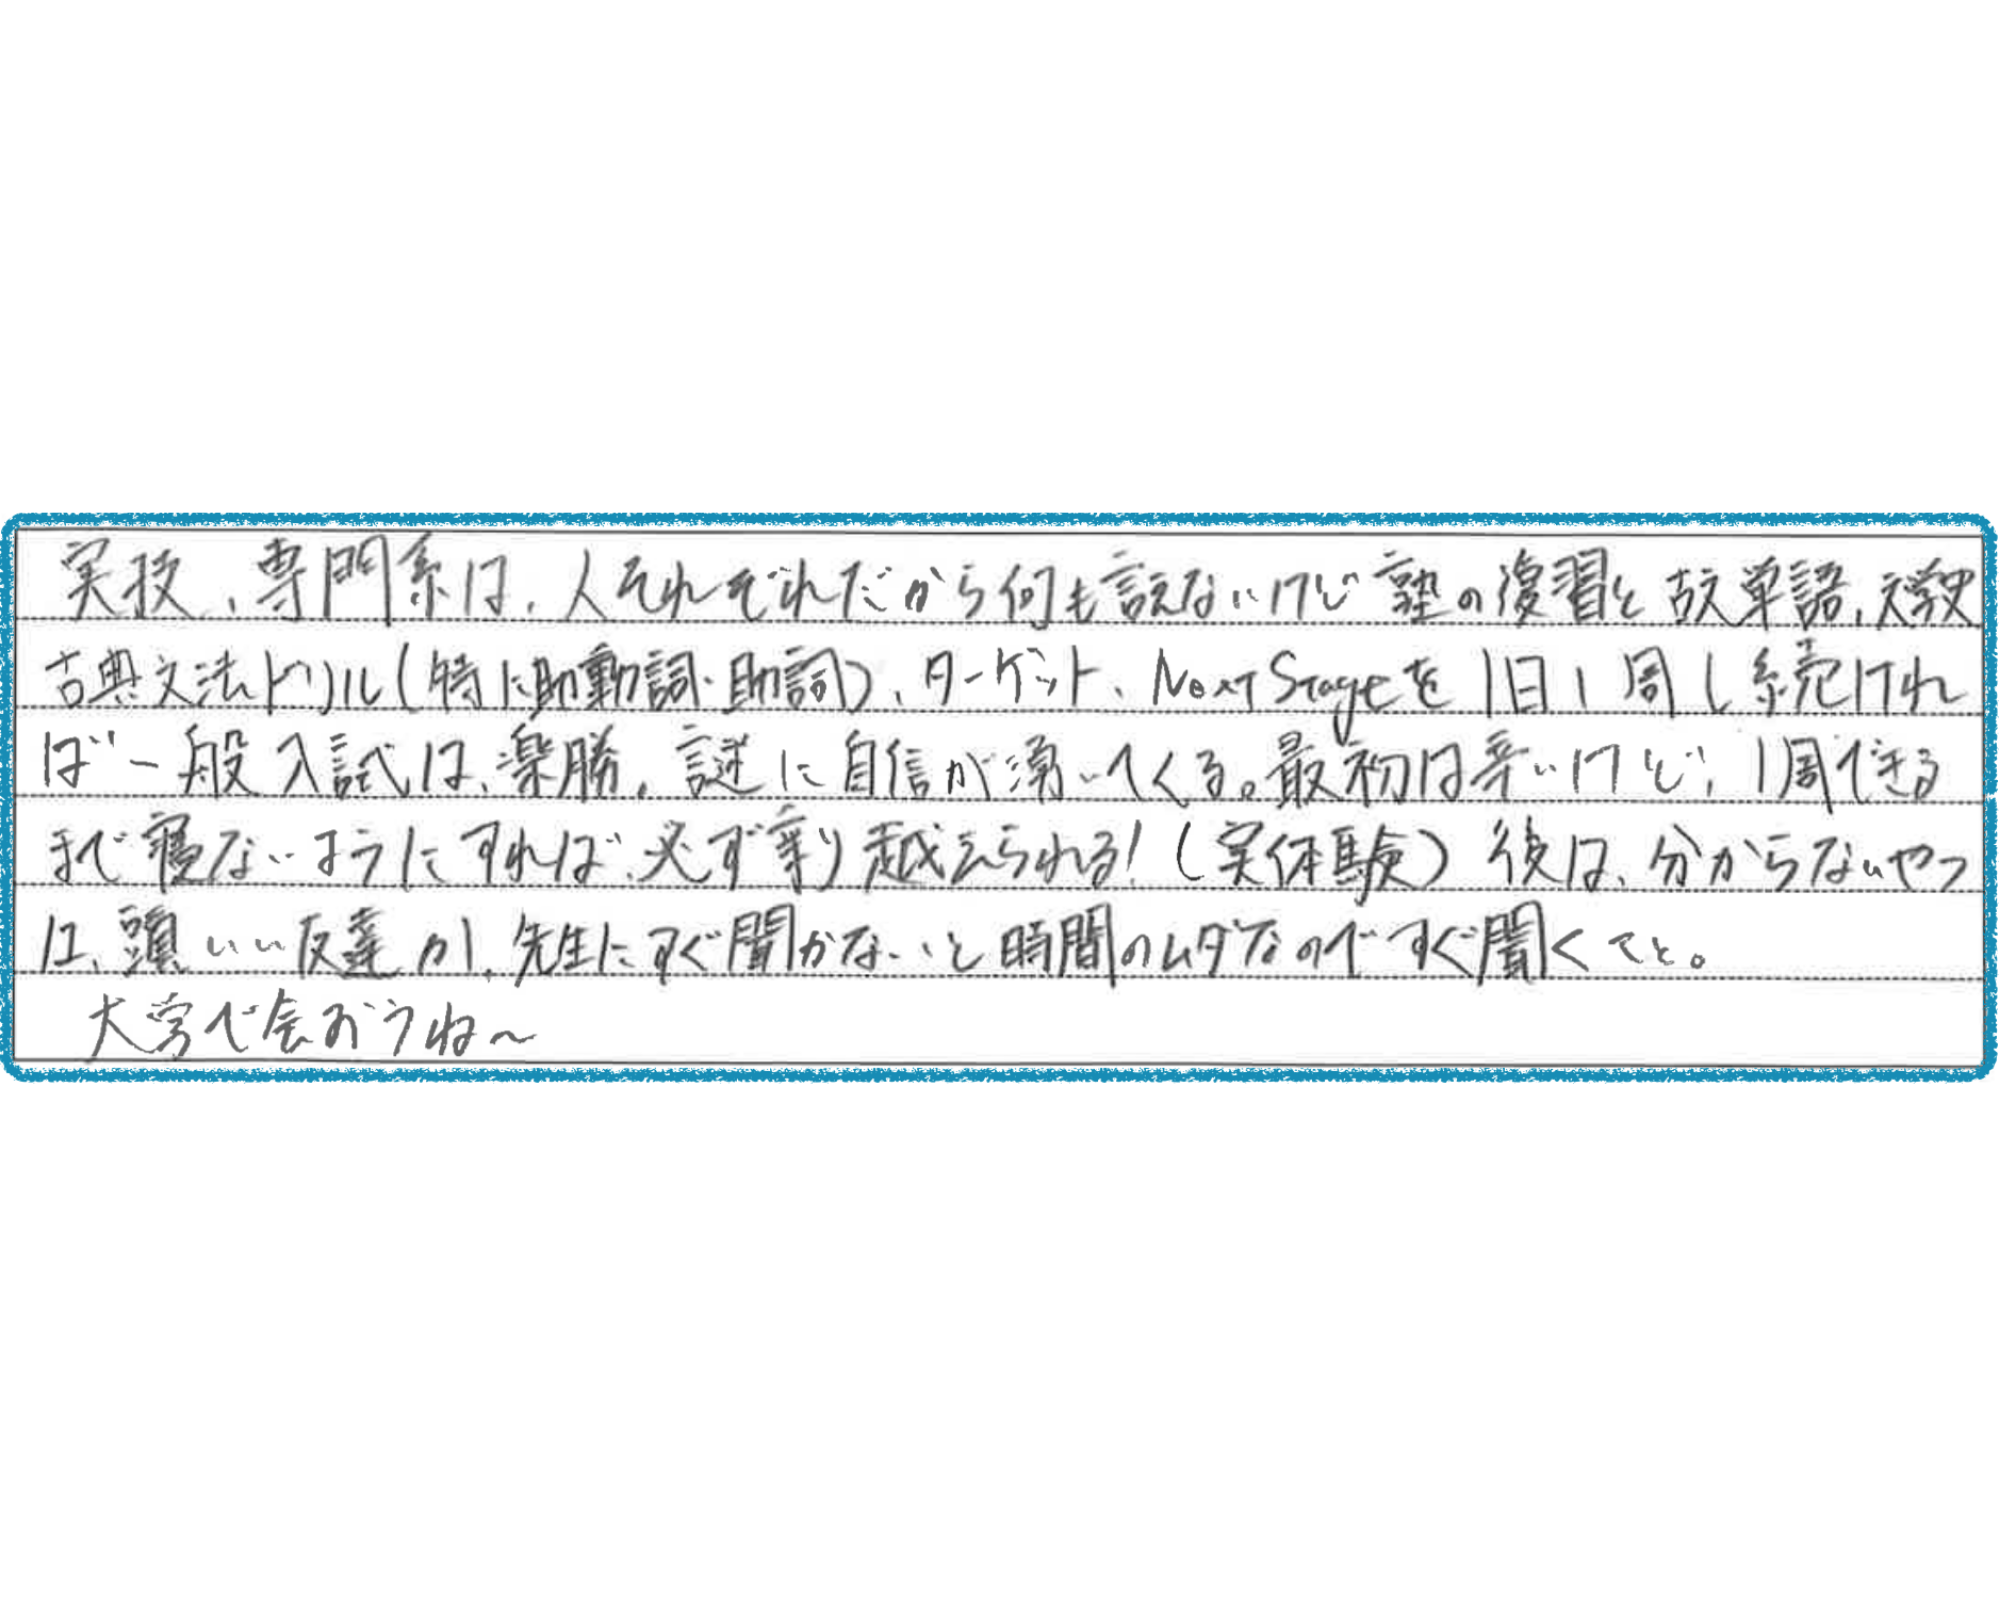 実技、専門系は、人それぞれだから何も言えないけど塾の復習と古文単語、文学史
古典文法ドリル(特に助動詞・助詞)、ターゲット、Next Stageを1日1周し続けれ
ば一般入試は、楽勝。謎に自信が湧いてくる。最初は辛いけど、1周できる
まで寝ないようにすれば、必ず乗り越えられる!(実体験)後は、分からないやつ
は、頭いい友達か、先生にすぐ聞かないと時間のムダなのですぐ聞くこと。
大学で会おうね〜